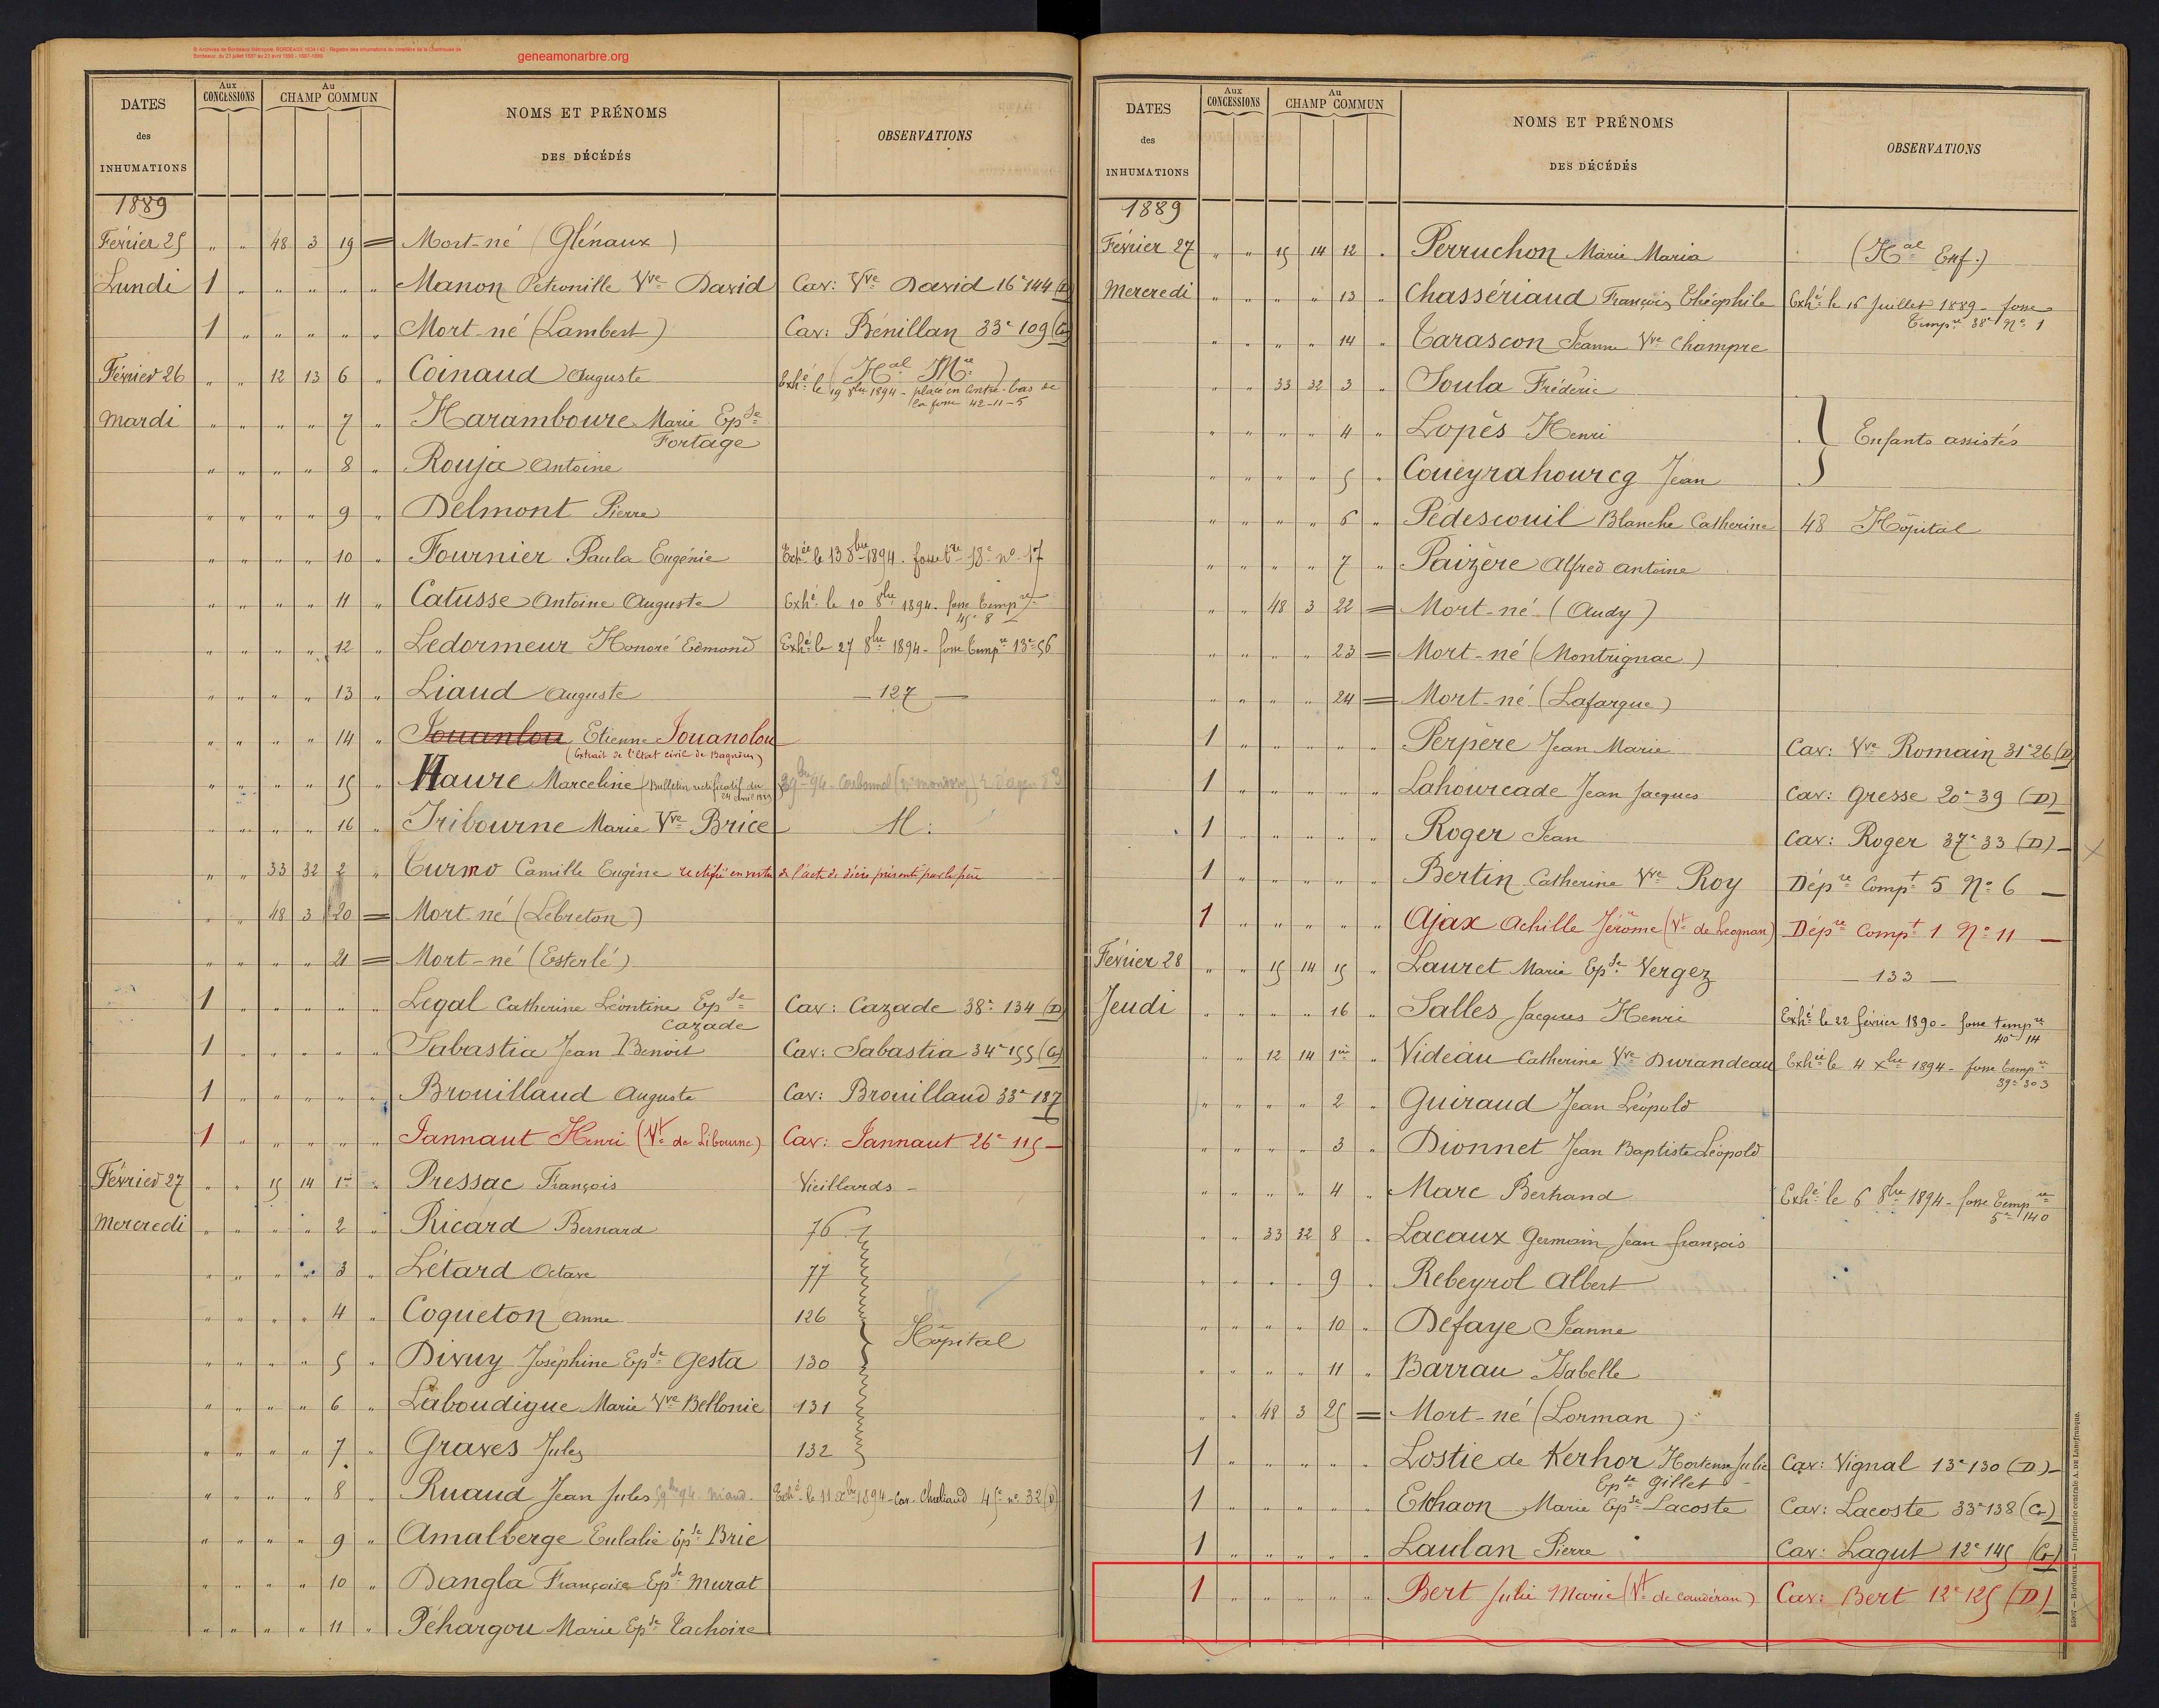 © Archives de Bordeaux Métropole, BORDEAUX 1634 I 42 - Registre des inhumations du cimetière de la Chartreuse de
Bordeaux, du 23 juillet 1887 au 23 avril 1890 - 1887-1890
geneamonarbre.org
DATES des INHUMATIONS Aux CONCESSIONS Au CHAMP COMMUN NOMS ET PRÉNOMS DES DÉCÉDÉS OBSERVATIONS
1889
Février 25 " " 48 3 19 = Mort-né (Glénaux)
Lundi 1 " " " " " Manon Petronille Vve David Cav: Vve David 16e 144 (D)
1 " " " " " Mort-né (Lambert) Cav: Bénillan 33e 109 (Co)
Février 26 " " 12 13 6 " Coinaud Auguste (Hal Mre)
Exhé le 19 8bre 1894 - placé en contre-bas de
la fosse 42-11-5
Mardi " " " " 7 " Haramboure Marie Epse
Fortage
" " " " 8 " Rouja Antoine
" " " " 9 " Delmont Pierre
" " " " 10 " Fournier Paula Eugénie Exhée le 13 8bre 1894. fosse tre 18e no 17
" " " " 11 " Catusse Antoine Auguste Exhé le 10 8bre 1894. fosse tempre
45e 8
" " " " 12 " Ledormeur Honoré Edmond Exhé le 27 8bre 1894 - fosse tempre 13e 56
" " " " 13 " Liaud Auguste — 127 —
" " " " 14 " Jouanlou Etienne Jouanolou
(Extrait de l'Etat civil de Bagnères)
" " " " 15 " Haure Marceline (Bulletin rectificatif du
24 avril 1889)
" " " " 16 " Tribourne Marie Vve Brice M:
" " 33 32 2 " Curmo Camille Eugène rectifié en vertu de l'acte de décès présenté par le père
" " 48 3 20 = Mort-né (Lebreton)
" " " " 21 = Mort-né (Esterlé)
1 " " " " " Legal Catherine Léontine Epse Cav: Cazade 38e 134 (D)
Cazade
1 " " " " " Sabastia Jean Benoit Cav: Sabastia 34e 155 (Co)
1 " " " " " Brouillaud Auguste Cav: Brouillaud 33e 187
1 " " " " " Jannaut Henri (Vt de Libourne) Cav: Jannaut 26e 115 —
Février 27 " " 15 14 1er " Pressac François Vieillards —
Mercredi " " " " 2 " Ricard Bernard 76
" " " " 3 " Létard Octave 77
" " " " 4 " Coqueton Anne 126
Hôpital
" " " " 5 " Divuy Joséphine Epse Gesta 130
" " " " 6 " Laboudigue Marie Vve Bellonie 131
" " " " 7 " Graves Jules 132
" " " " 8 " Ruaud Jean Jules Exhé le 11 xbre 1894 - Cav. Chaliaud 45e no 32 (D)
" " " " 9 " Amalberge Eulalie Epse Brie
" " " " 10 " Dangla Françoise Epse Murat
" " " " 11 " Péhargou Marie Epse Tachoire
DATES des INHUMATIONS Aux CONCESSIONS Au CHAMP COMMUN NOMS ET PRÉNOMS DES DÉCÉDÉS OBSERVATIONS
1889
Février 27 " " 15 14 12 " Perruchon Marie Maria (Hal Enf.)
Mercredi " " " " 13 " Chassériaud François Théophile Exhé le 16 Juillet 1889 - fosse
tempre 38e No 1
" " " " 14 " Tarascon Jeanne Vve Champre
" " 33 32 3 " Soula Frédéric
" " " " 4 " Lopès Henri Enfants assistés
" " " " 5 " Coueyrahourcq Jean
" " " " 6 " Pédescouil Blanche Catherine 48 Hôpital
" " " " 7 " Paizère Alfred Antoine
" " 48 3 22 = Mort-né (Audy)
" " " " 23 = Mort-né (Montrignac)
" " " " 24 = Mort-né (Lafargue)
1 " " " " " Perpère Jean Marie Cav: Vve Romain 31e 26 (D)
1 " " " " " Lahourcade Jean Jacques Cav: Gresse 20e 39 (D)
1 " " " " " Roger Jean Cav: Roger 37e 33 (D) —
1 " " " " " Bertin Catherine Vve Roy Dépre Compt 5 No 6 —
1 " " " " " Ajax Achille Jérôme (Vt de Leognan) Dépre Compt 1 No 11 —
Février 28 " " 15 14 15 " Lauret Marie Epse Vergez — 133 —
Jeudi " " " " 16 " Salles Jacques Henri Exhé le 22 février 1890 - fosse tempre
40e 14
" " 12 14 1er " Videau Catherine Vve Durandeau Exhée le 4 xbre 1894 - fosse tempre
39e 303
" " " " 2 " Guiraud Jean Léopold
" " " " 3 " Dionnet Jean Baptiste Léopold
" " " " 4 " Marc Bertrand Exhé le 6 8bre 1894 - fosse tempre
5e 140
" " 33 32 8 " Lacaux Germain Jean François
" " " " 9 " Rebeyrol Albert
" " " " 10 " Défaye Jeanne
" " " " 11 " Barrau Isabelle
" " 48 3 25 = Mort-né (Lorman)
1 " " " " " Lostie de Kerhor Hortense Julie Cav: Vignal 13e 130 (D) —
Epse Gillet
1 " " " " " Marie Epse Lacoste Cav: Lacoste 33e 138 (Co)
1 " " " " " Laulan Pierre Cav: Lagut 12e 145 (Co)
1 " " " " " Bert Julie Marie (Vt de Caudéran) Cav: Bert 12e 125 (D)
— Bordeaux. — Imprimerie centrale A. DE Lanefranque.